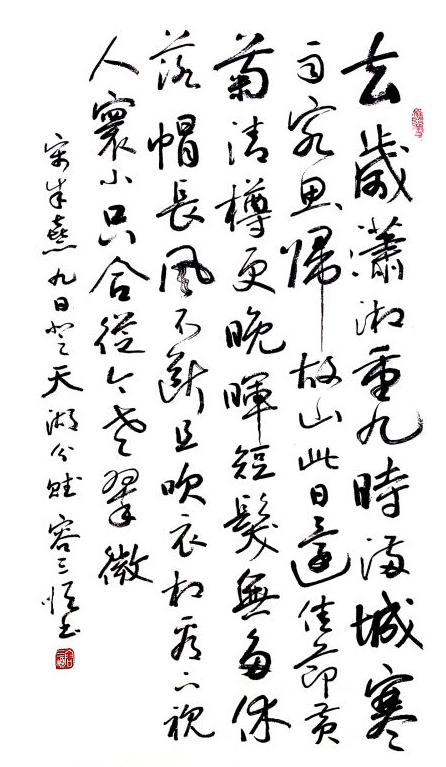 去歲瀟湘重九時滿城寒
雨客思歸故山此日還佳節黃
菊清樽更晚暉短髮無多休
落帽長風不斷且吹衣相看下視
人寰小只合從今老翠微
宋朱熹九日登天湖分賦 容三书